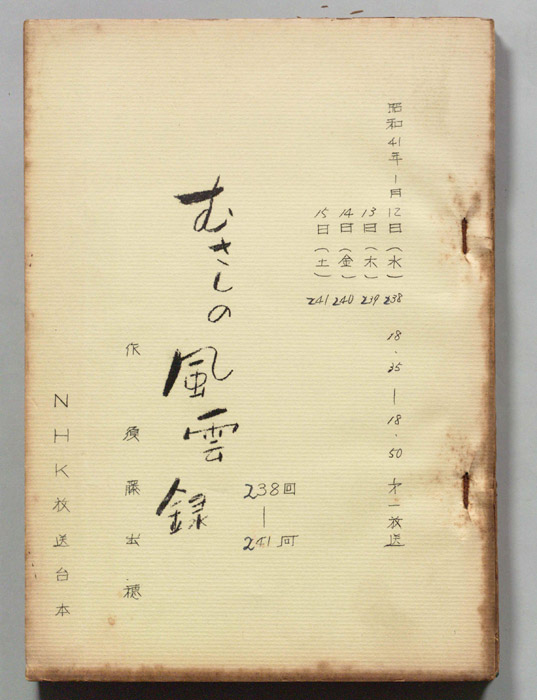 昭和41年1月12日(水)238 18.35―18.50 才一放送
13日(木)239
14日(金)240
15日(土)241
238回―241回
むさしの風雲録
作 須藤出穂
NHK放送台本